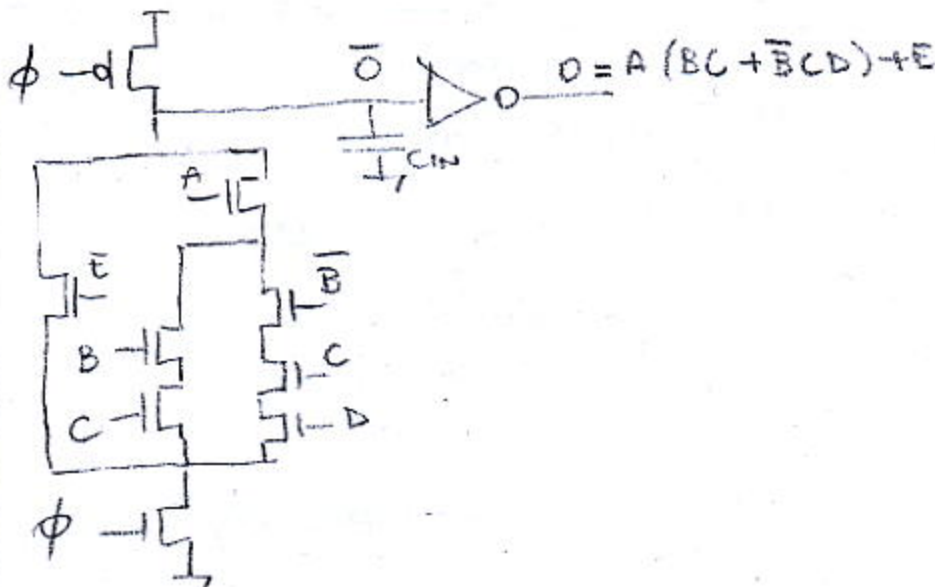 ϕ
O̅
O = A (BC + B̅CD) + E̅
CIN
A
E̅
B̅
B
C
C
D
ϕ